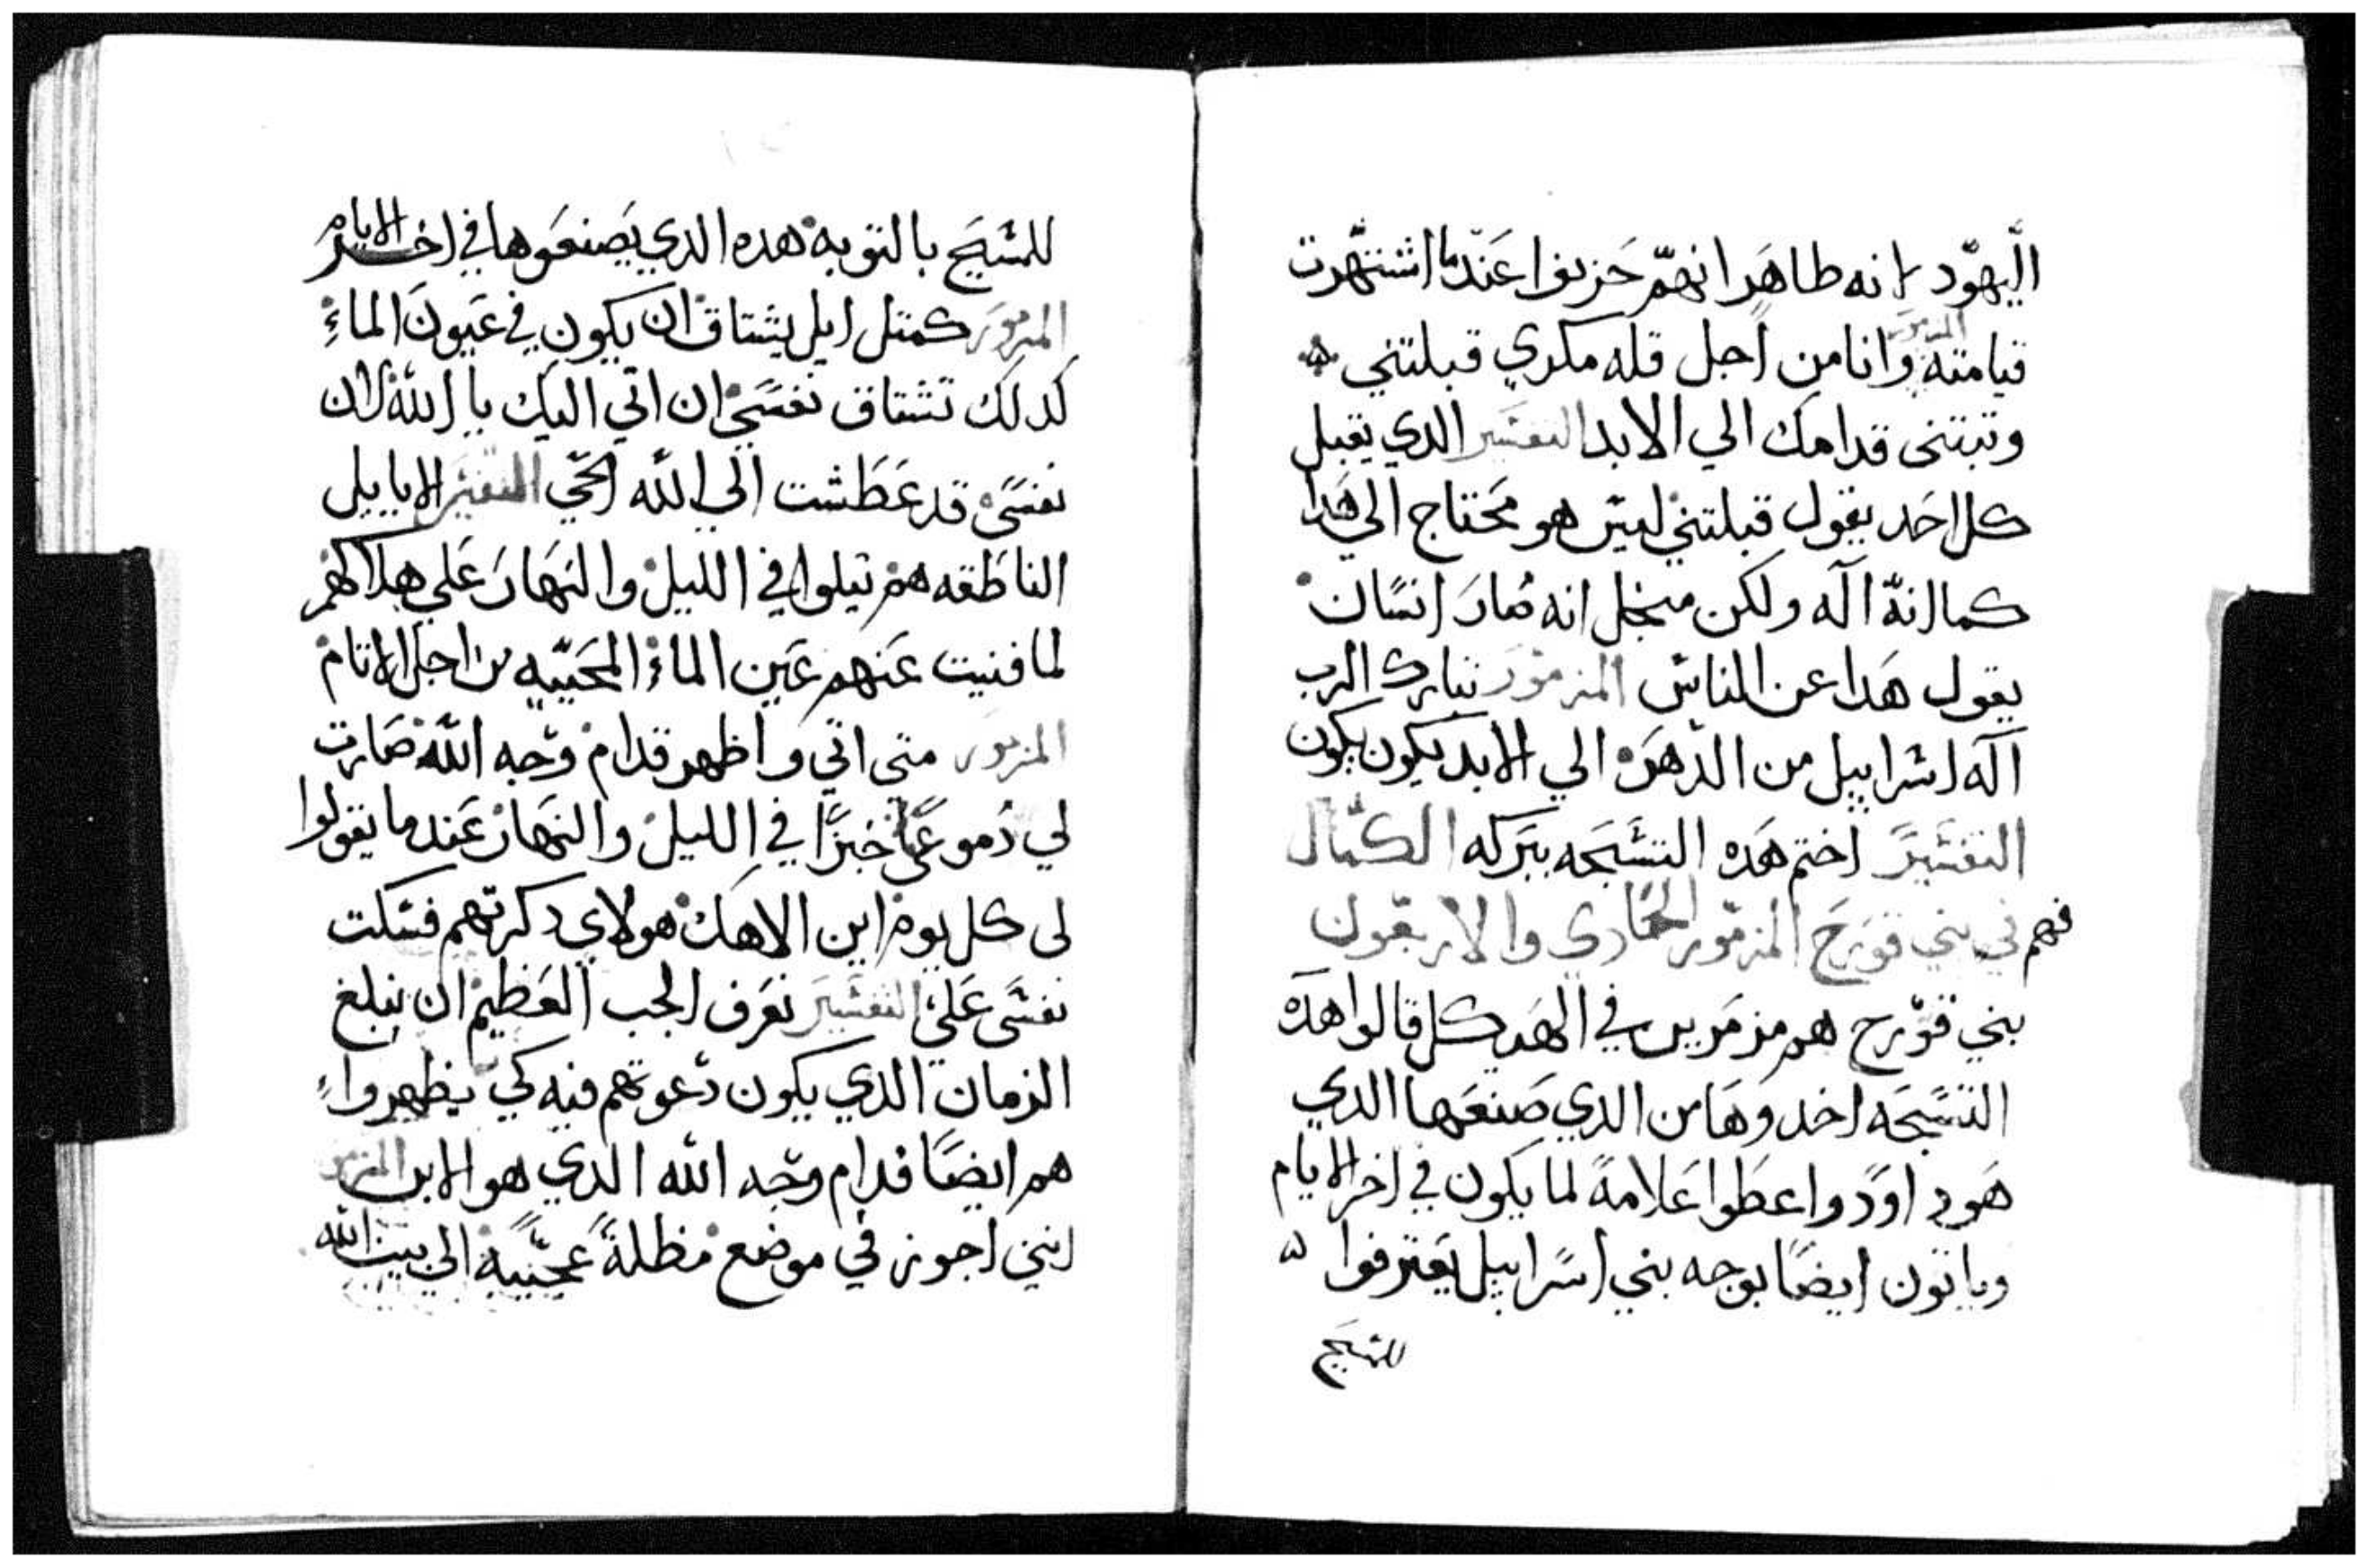 اليهود انه طاهر انهم حزنوا عندما اشتهرت
قيامته المزمور وانا من اجل قله مكري قبلتني
وتبتنى قدامك الي الابد التفسير الدي يقبل
كل احد يقول قبلتني ليس هو محتاج الي هدا
كما انه اله ولكن منجل انه صار انسان
يقول هدا عن الناس المزمور تبارك الرب
اله اسراييل من الدهر الي الابد يكون يكون
التفسير اختم هده التسبحه ببركه الكمال
فهم لبني قورح المزمور الحادي والاربعون
بني قورح هم مزمرين في الهيكل قالوا هده
التسبحه اخدوها من الدي صنعها الدي
هو داوود واعطوا علامة لما يكون في اخر الايام
وياتون ايضا بوجه بني اسراييل يعترفوا
للمسيح
للمسيح بالتوبه هده الدي يصنعوها في اخر الايام
المزمور كمتل ايل يشتاق ان يكون في عيون الماء
كدلك تشتاق نفسي ان اتي اليك يا الله لان
نفسي قد عطشت الي الله الحي التفسير الايايل
الناطقه هم تيلوا في الليل والنهار علي هلاكهم
لما فنيت عنهم عين الماء المحييه من اجل الاتام
المزمور متي اتي واظهر قدام وجه الله صارت
لي دموعي خبزا في الليل والنهار عندما يقولوا
لى كل يوم اين الاهك هولاي دكرتهم فسكت
نفسى علي التفسير نعرف الجب العظيم ان نبلغ
الزمان الدي يكون دعوتهم فيه كي يظهروا
هم ايضا قدام وجه الله الدي هو الابن المزمور
انني اجوز في موضع مظلة عجيبة الي بيت الله